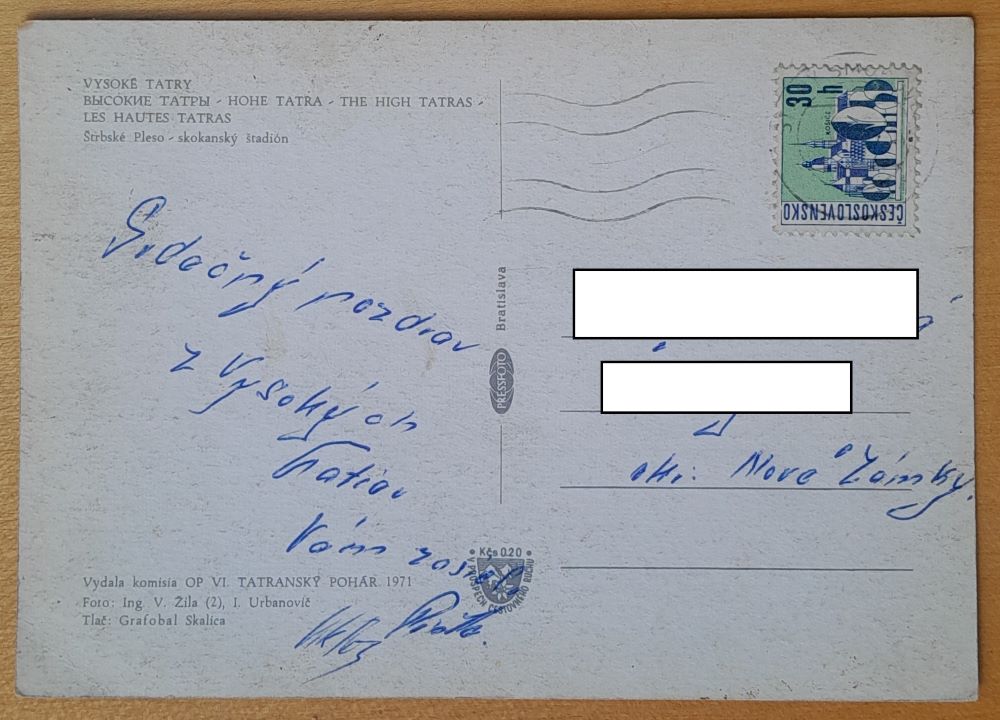 VYSOKÉ TATRY
ВЫСОКИЕ ТАТРЫ - HOHE TATRA - THE HIGH TATRAS -
LES HAUTES TATRAS
Štrbské Pleso - skokanský štadión
30 h
KOŠICE
ČESKOSLOVENSKO
Srdečný pozdrav
z Vysokých
Tatier
Vám
PRESSFOTO Bratislava
okr. Nové Zámky.
Kčs 0.20
V PROSPECH CESTOVNÉHO RUCHU
Vydala komisia OP VI. TATRANSKÝ POHÁR 1971
Foto: Ing. V. Žila (2), I. Urbanovič
Tlač: Grafobal Skalica